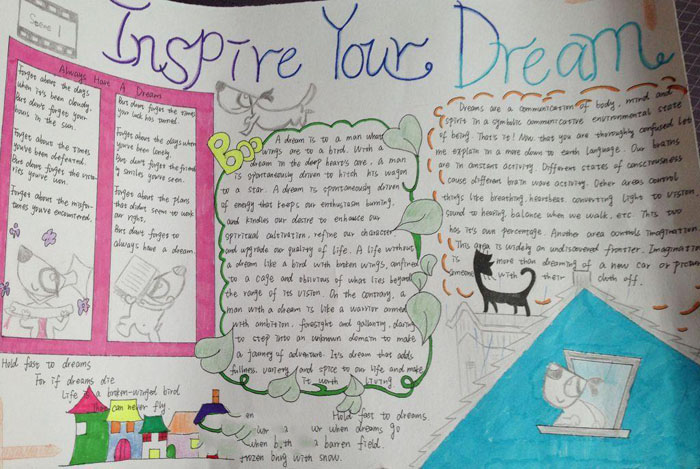 Scene 1
Inspire Your Dream
Always Have A Dream
Forget about the days
when it's been cloudy.
But don't forget your
hours in the sun.
Forget about the times
you've been defeated.
But don't forget the victo-
ries you've won.
Forget about the misfor-
tunes you've encountered.
But don't forget the times
your luck has turned.
Forget about the days when
you've been lonely.
But don't forget the friend
ly smiles you've seen.
Forget about the plans
that didn't seem to work
out right.
But don't forget to
always have a dream.
Boo
A dream is to a man what
wings are to a bird. With a
dream in the deep heart's core, a man
is spontaneously driven to hitch his wagon
to a star. A dream is spontaneously driven
of energy that keeps our enthusiasm burning,
and kindles our desire to enhance our
spiritual cultivation, refine our character
and upgrade our quality of life. A life without
a dream like a bird with broken wings, confined
to a cage and oblivious of what lies beyond
the range of its vision. On the contrary, a
man with a dream is like a warrior armed
with ambition, foresight and gallantry, daring
to step into an unknown domain to make
a journey of adventure. It's dream that adds
fullness, variety and spice to our life and make
it worth living
Dreams are a communication of body, mind and
spirit in a symbolic communicative environmental state
of being. That's it! Now that you are thoroughly confused, let
me explain in a more down to earth language. Our brains
are in constant activity. Different states of consciousness
cause different brain wave activity. Other areas control
things like breathing, heartbeat, converting light to vision,
sound to hearing, balance when we walk, etc. This two
has it's own percentage. Another area controls imagination.
This area is widely an undiscovered frontier. Imagination
is more than dreaming of a new car or picture
someone with their cloth off.
Hold fast to dreams
For if dreams die
Life is a broken-winged bird
That can never fly.
Hold fast to dreams
when dreams go
a barren field
frozen only with snow.